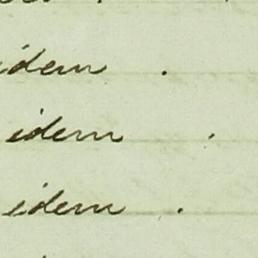 idem .
idem .
idem .